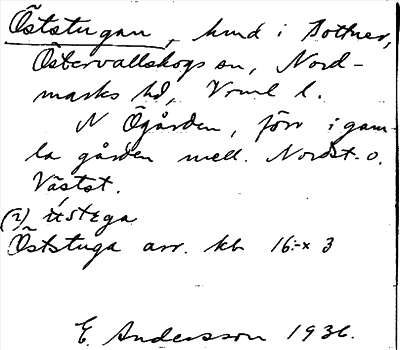 Öststugan, hmd i Bottner,
Östervallskogs sn, Nord-
marks hd, Vrml l.
N Ögården, förr i gam-
la gården mell. Nordst. o.
Västst.
(2) ɯ́stɛga
Öststuga arr. kb 16:-x 3
E. Andersson 1936.